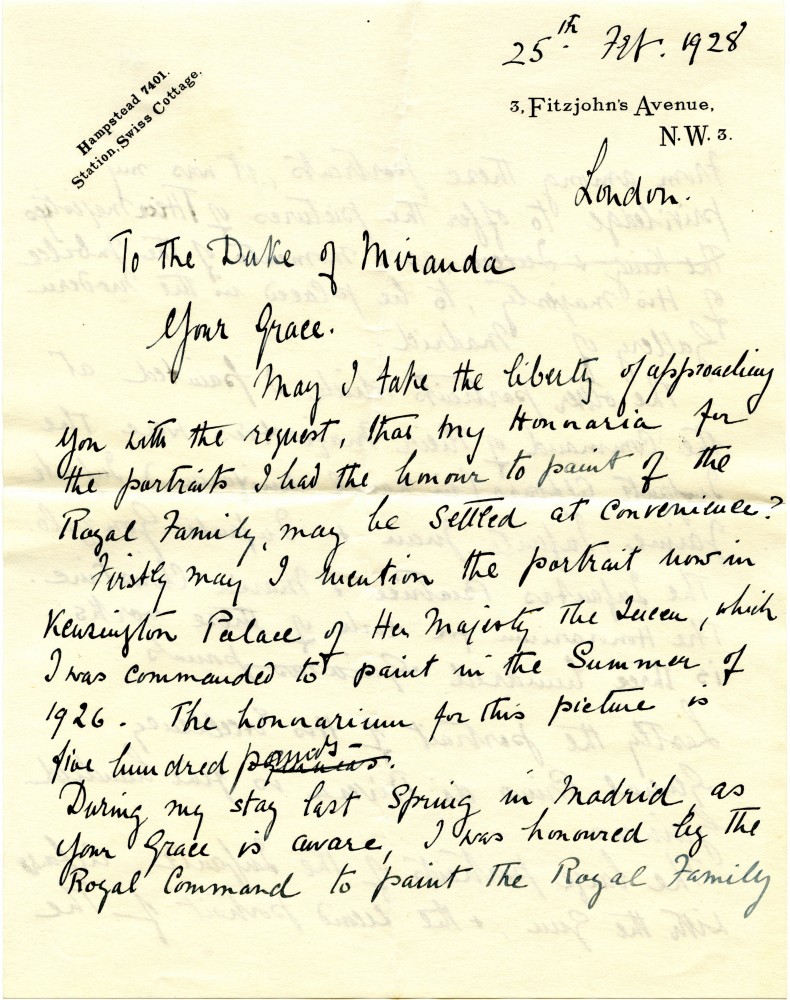 25th Feb. 1928
Hampstead 7401.
Station, Swiss Cottage.
3, Fitzjohn's Avenue,
N.W. 3.
London.
To the Duke of Miranda
Your Grace.
May I take the liberty of approaching
you with the request, that my Honnaria for
the portraits I had the honour to paint of the
Royal Family, may be settled at convenience?
Firstly may I mention the portrait now in
Kensington Palace of Her Majesty The Queen, which
I was commanded to paint in the Summer of
1926. The honnorarium for this picture is
five hundred pounds.
During my stay last Spring in Madrid, as
Your Grace is aware, I was honoured by the
Royal Command to paint the Royal Family